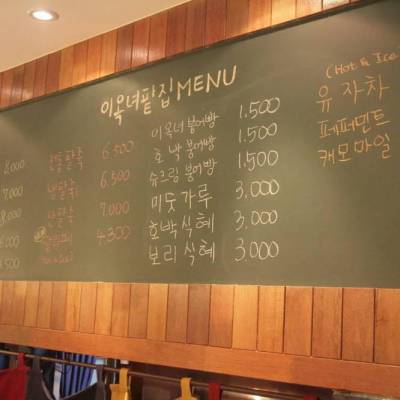 이옥녀팥집 MENU
8,000
7,000
8,000
6,000
6,500
전통팥죽 6,500
팥칼죽 6,500
단팥죽 7,000
4,300
이옥녀 붕어빵 1,500
호박 붕어빵 1,500
슈크림 붕어빵 1,500
미숫가루 3,000
호박식혜 3,000
보리 식혜 3,000
(Hot & Ice
유자차
페퍼민트
캐모마일